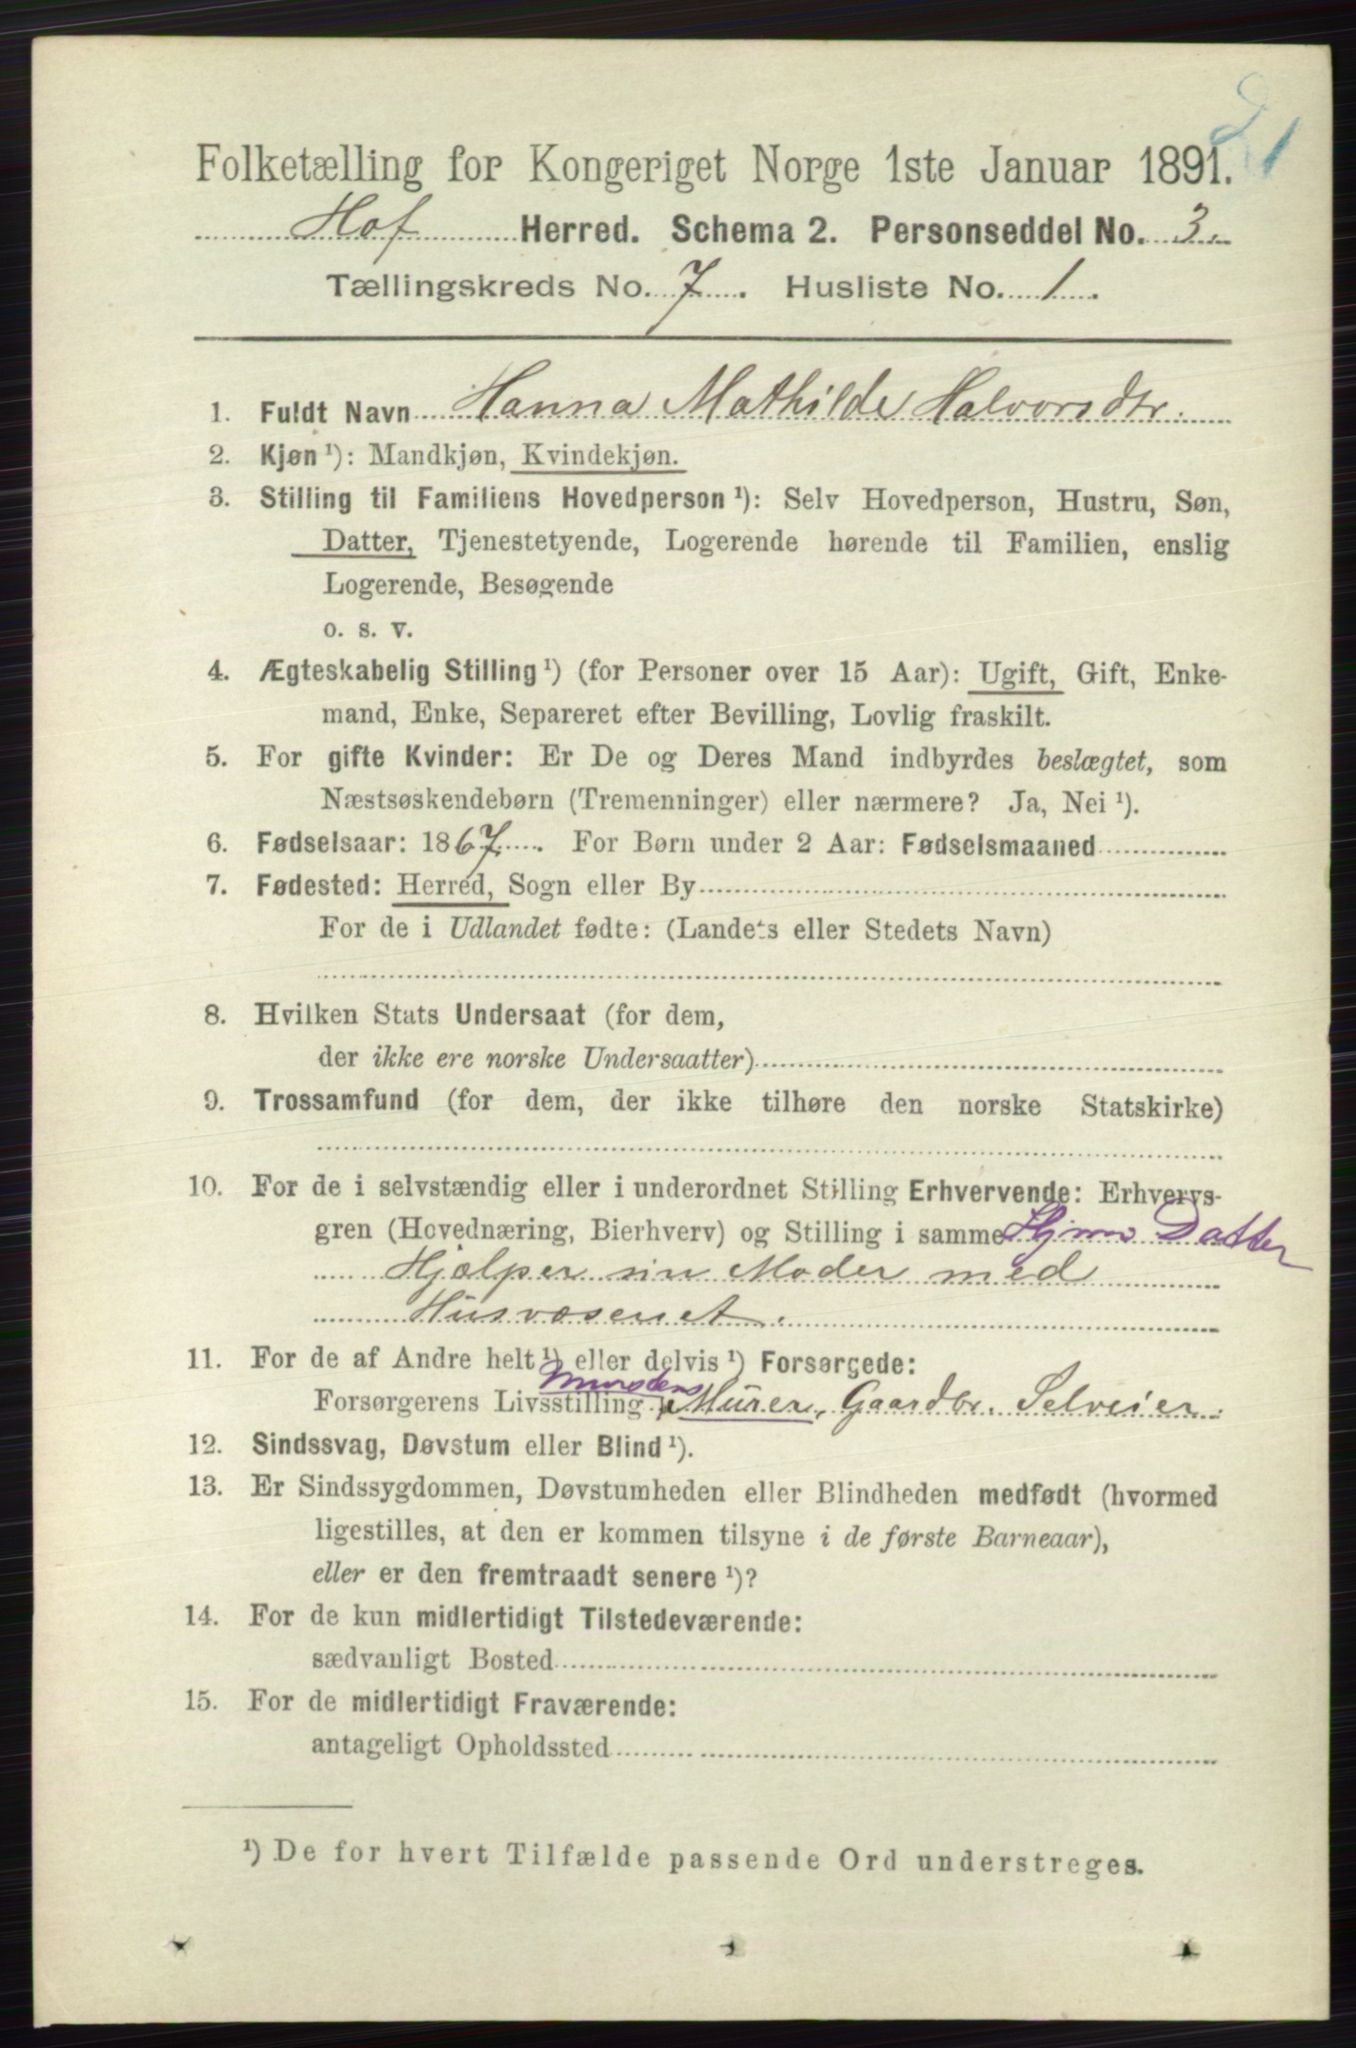 Folketælling for Kongeriget Norge 1ste Januar 1891.
Hof Herred. Schema 2. Personseddel No. 3.
Tællingskreds No. 7. Husliste No. 1.
1. Fuldt Navn Hanna Mathilde Halvorsdtr.
2. Kjøn ¹): Mandkjøn, Kvindekjøn.
3. Stilling til Familiens Hovedperson ¹): Selv Hovedperson, Hustru, Søn,
Datter, Tjenestetyende, Logerende hørende til Familien, enslig
Logerende, Besøgende
o. s. v.
4. Ægteskabelig Stilling ¹) (for Personer over 15 Aar): Ugift, Gift, Enke-
mand, Enke, Separeret efter Bevilling, Lovlig fraskilt.
5. For gifte Kvinder: Er De og Deres Mand indbyrdes beslægtet, som
Næstsøskendebørn (Tremenninger) eller nærmere? Ja, Nei ¹).
6. Fødselsaar: 1867. For Børn under 2 Aar: Fødselsmaaned
7. Fødested: Herred, Sogn eller By
For de i Udlandet fødte: (Landets eller Stedets Navn)
8. Hvilken Stats Undersaat (for dem,
der ikke ere norske Undersaatter)
9. Trossamfund (for dem, der ikke tilhøre den norske Statskirke)
10. For de i selvstændig eller i underordnet Stilling Erhvervende: Erhvervs-
gren (Hovednæring, Bierhverv) og Stilling i samme Datter
Hjælper sin Moder med
Husvæsenet.
11. For de af Andre helt ¹) eller delvis ¹) Forsørgede:
Forsørgerens Livsstilling Murer, Gaardbr. Selveier.
12. Sindssvag, Døvstum eller Blind ¹).
13. Er Sindssygdommen, Døvstumheden eller Blindheden medfødt (hvormed
ligestilles, at den er kommen tilsyne i de første Barneaar),
eller er den fremtraadt senere ¹)?
14. For de kun midlertidigt Tilstedeværende:
sædvanligt Bosted
15. For de midlertidigt Fraværende:
antageligt Opholdssted
¹) De for hvert Tilfælde passende Ord understreges.